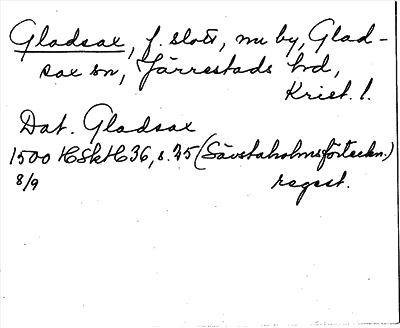 Gladsax, f. slott, nu by, Glad-
sax sn, Järrestads hd,
Krist. l.
Dat. Gladsax
1500 HSkH 36, s. 75 (Sävstaholmsförteckn.)
8/9 regest.